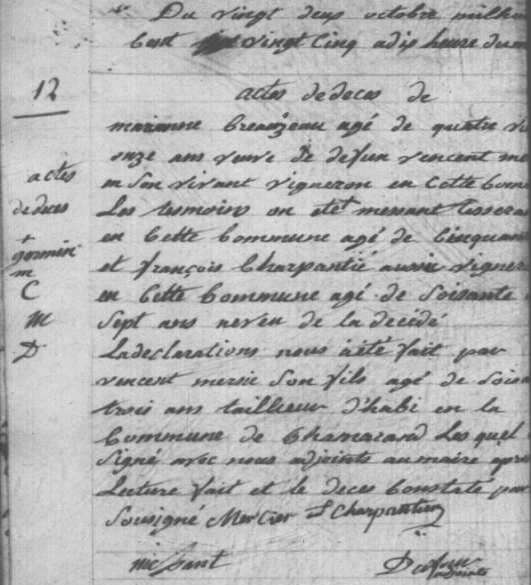 Du vingt deux octobre mil hui
Cent vingt Cinq a dix heure du m
12
actes de deces de
marianne agé de quatre v
onze ans veuve de defun vencent me
actes
en Son vivant vigneron en Cette Com
de deces
Les temoins on eté
en Cette Commune agé de Cinquan
et françois Charpantié aussi vigner
m
C
en Cette Commune agé de Soisante
m
Sept ans neveu de la decédé
D
La declarations nous a eté fait par
vencent mersié Son fils agé de Soisa
trois ans taillieur d'habi en la
Commune de Chamarand Lesquel
Signé avec nous adjoints au maire apres
Lecture fait et le deces Constaté par
Sousigné Mercier Charpantier
adjoint